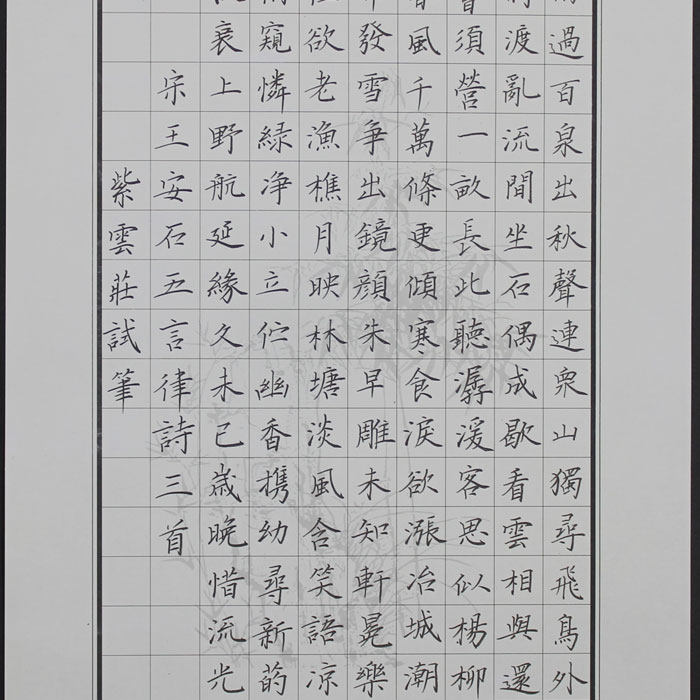 過百泉出秋聲連衆山獨尋飛鳥外
渡亂流間坐石偶成歇看雲相與還
須營一畝長此聽潺湲客思似楊柳
風千萬條更傾寒食淚欲漲冶城潮
發雪爭出鏡顏朱早雕未知軒冕樂
欲老漁樵月映林塘淡風含笑語涼
窺憐綠净小立佇幽香携幼尋新菂
衰上野航延緣久未已歲晚惜流光
宋王安石五言律詩三首
紫雲莊試筆